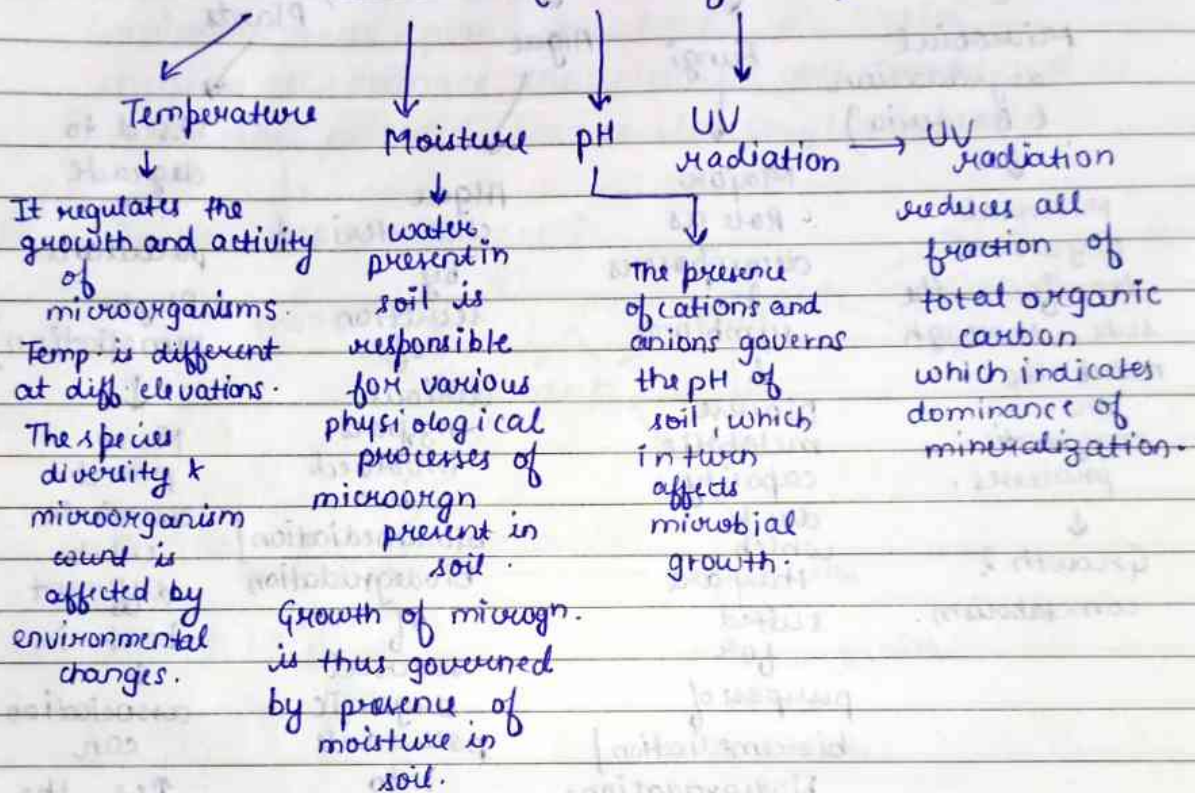 Temperature
It regulates the
growth and activity
of
microorganisms.
Temp is different
at diff. elevations.
The species
diversity &
microorganism
count is
affected by
environmental
changes.
Moisture
water
present in
soil is
responsible
for various
physiological
processes of
microorgn
present in
soil.
Growth of microgn.
is thus governed
by presence of
moisture in
soil.
pH
The presence
of cations and
anions governs
the pH of
soil, which
in turn
affects
microbial
growth.
UV
radiation
UV
radiation
reduces all
fraction of
total organic
carbon
which indicates
dominance of
mineralization.